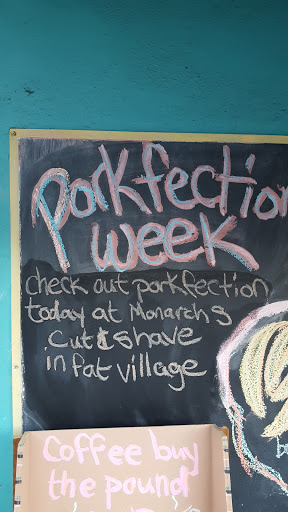 Porkfection
week
check out porkfection
today at Monarchs
Cut & shave
in fat village
Coffee buy
the pound